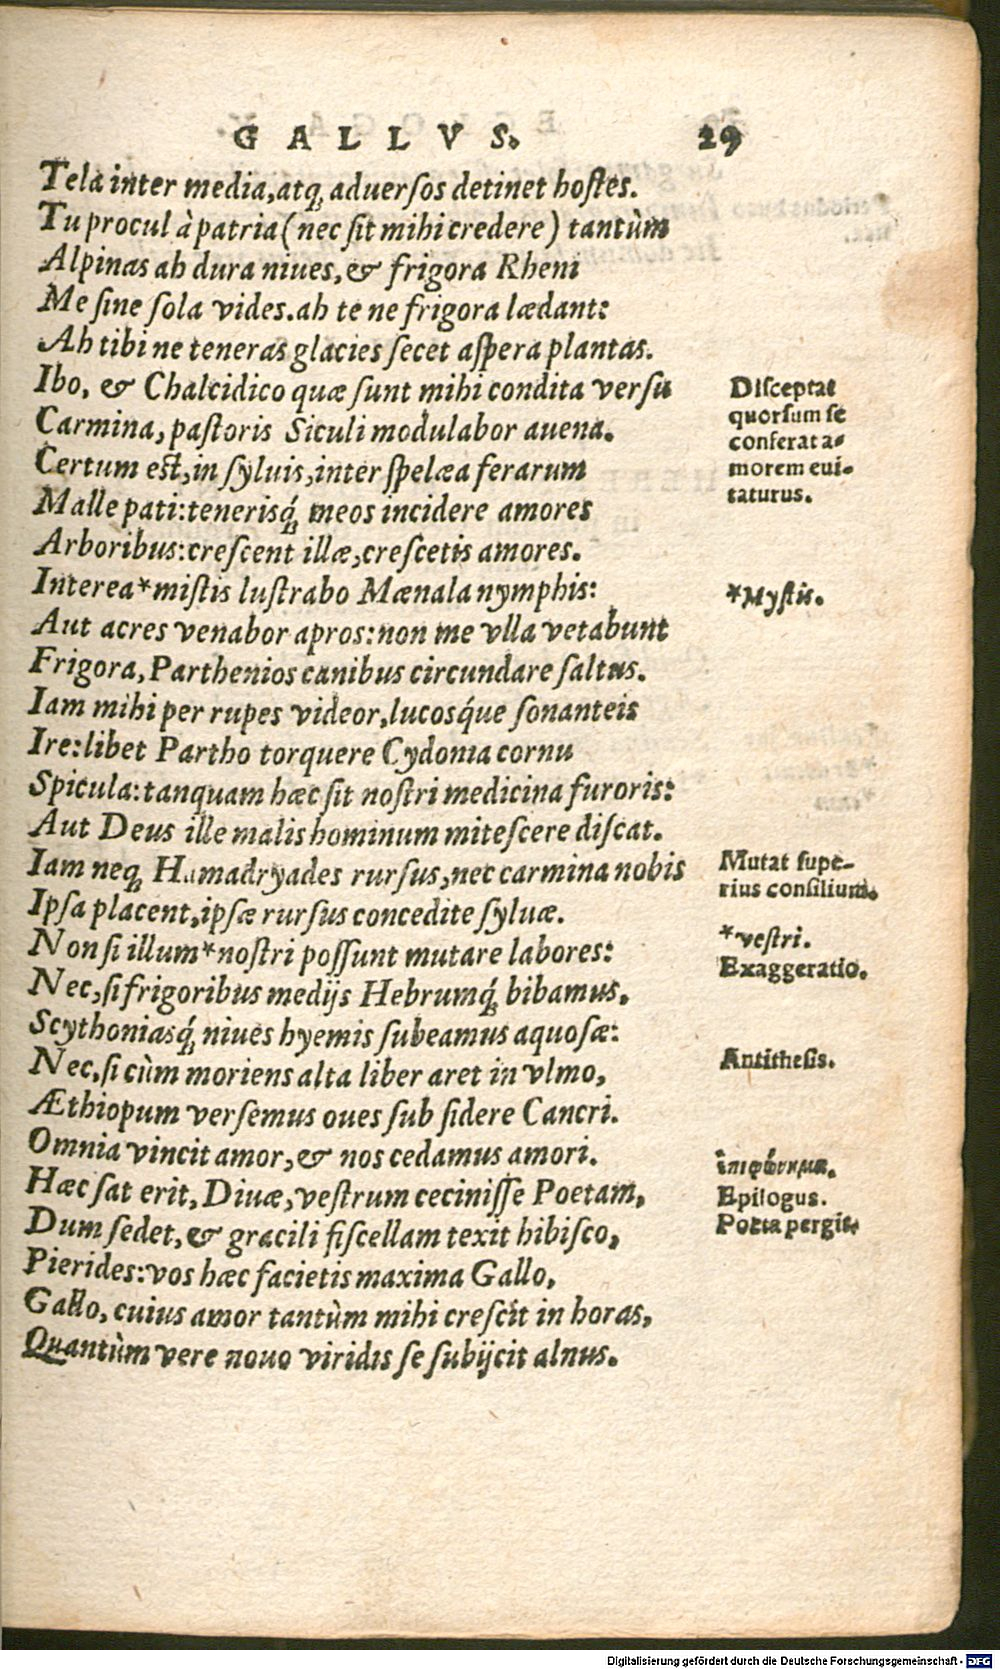 GALLVS. 29
Tela inter media, atq; aduerſos detinet hoſtes.
Tu procul à patria (nec ſit mihi credere) tantùm
Alpinas ah dura niues, & frigora Rheni
Me ſine ſola vides. ah te ne frigora lædant:
Ah tibi ne teneras glacies ſecet aſpera plantas.
Ibo, & Chalcidico quæ ſunt mihi condita verſu
Carmina, paſtoris Siculi modulabor auena.
Certum eſt, in ſyluis, inter ſpelæa ferarum
Malle pati: tenerisq́; meos incidere amores
Arboribus: creſcent illæ, creſcetis amores.
Interea*miſtis luſtrabo Mænala nymphis:
Aut acres venabor apros: non me vlla vetabunt
Frigora, Parthenios canibus circundare ſaltus.
Iam mihi per rupes videor, lucosq́ue ſonanteis
Ire: libet Partho torquere Cydonia cornu
Spicula: tanquam hæc ſit noſtri medicina furoris:
Aut Deus ille malis hominum miteſcere diſcat.
Iam neq; Hamadryades rurſus, nec carmina nobis
Ipſa placent, ipſæ rurſus concedite ſyluæ.
Non ſi illum*noſtri poſſunt mutare labores:
Nec, ſi frigoribus medijs Hebrumq́; bibamus,
Scythoniasq́; niues hyemis ſubeamus aquoſæ:
Nec, ſi cùm moriens alta liber aret in vlmo,
Æthiopum verſemus oues ſub ſidere Cancri.
Omnia vincit amor, & nos cedamus amori.
Hæc ſat erit, Diuæ, veſtrum ceciniſſe Poetam,
Dum ſedet, & gracili fiſcellam texit hibiſco,
Pierides: vos hæc facietis maxima Gallo,
Gallo, cuius amor tantùm mihi creſcit in horas,
Quantùm vere nouo viridis ſe ſubijcit alnus.
Diſceptat
quorſum ſe
conferat a-
morem eui-
taturus.
*Myſtis.
Mutat ſupe-
rius conſilium.
*veſtri.
Exaggeratio.
Antitheſis.
ἐπιφώνημα.
Epilogus.
Poeta pergit.
Digitalisierung gefördert durch die Deutsche Forschungsgemeinschaft - DFG